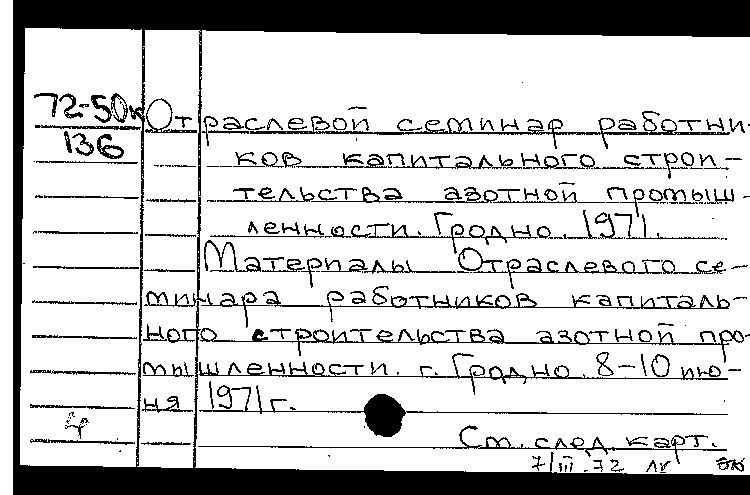 72-50к
136
Отраслевой семинар работни-
ков капитального строи-
тельства азотной промыш-
ленности. Гродно. 1971.
Материалы Отраслевого се-
минара работников капиталь-
ного строительства азотной про-
мышленности. г. Гродно. 8-10 ию-
ня 1971 г.
См. след. карт.
7/III.72